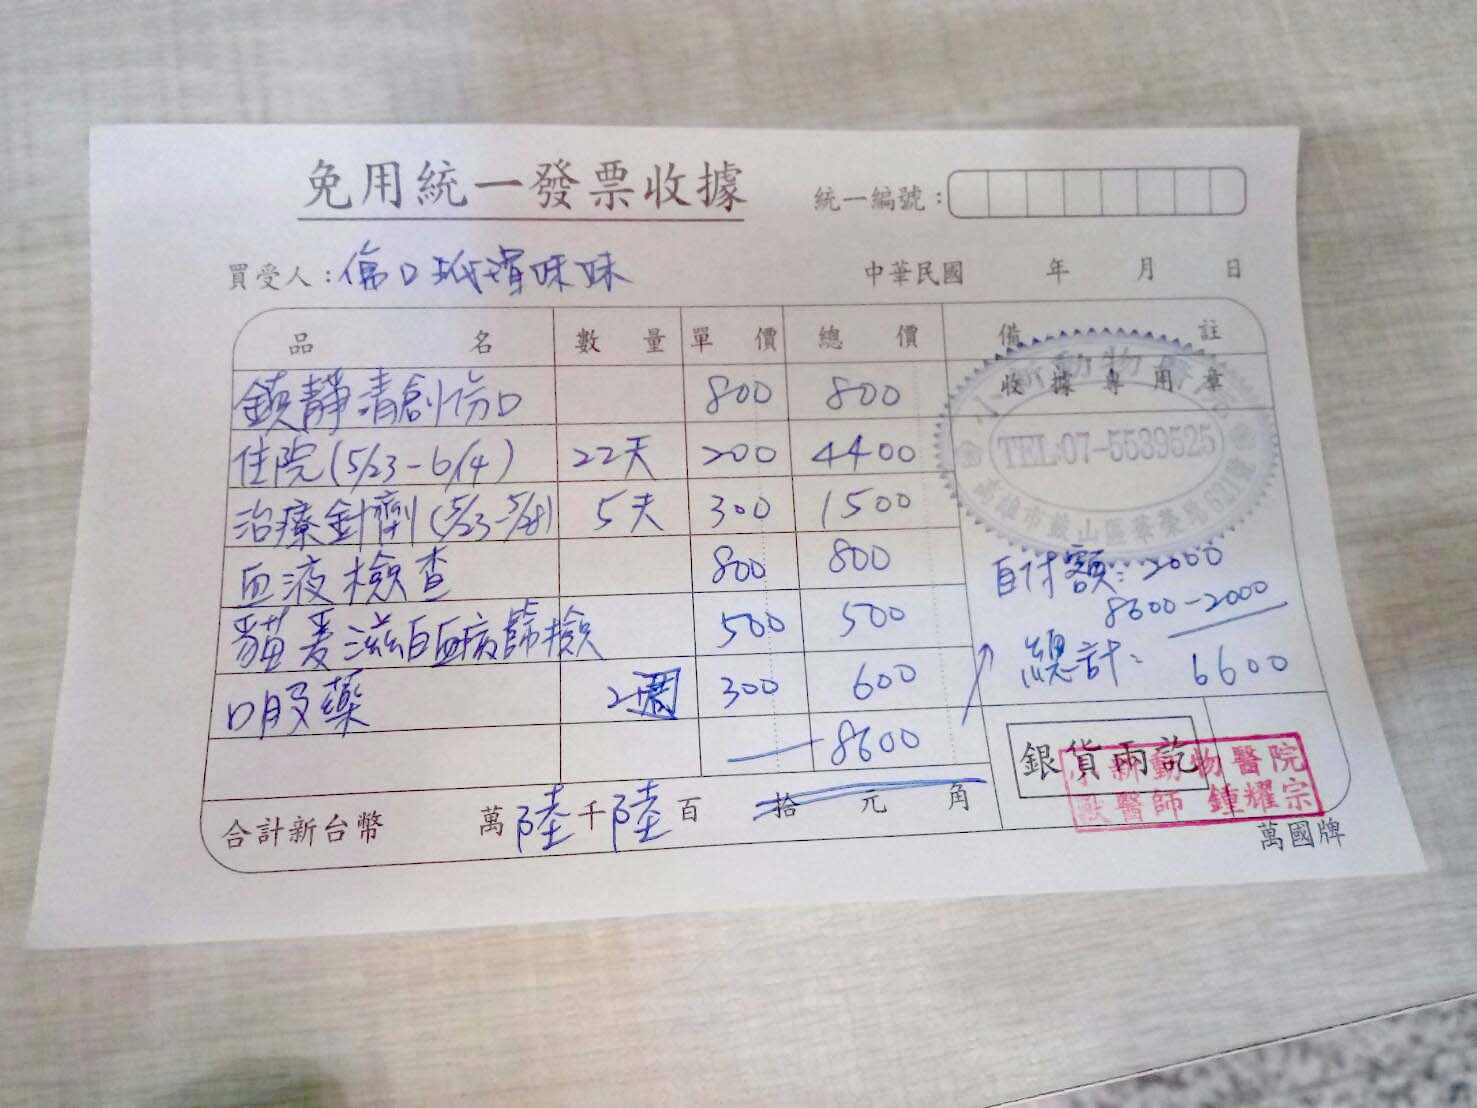 免用統一發票收據
統一編號：
買受人：傷口抓潰妹妹
中華民國 年 月 日
品名 數量 單價 總價 備註
鎮靜清創傷口 800 800
住院(5/23-6/14) 22天 200 4400
治療針劑(5/23-5/28) 5天 300 1500
血液檢查 800 800
貓愛滋白血病篩檢 500 500
口服藥 2週 300 600
8600
收據專用章
小新動物醫院
TEL:07-5539525
高雄市鼓山區華榮路
自付額：2000
8600-2000
總計：6600
銀貨兩訖
小新動物醫院
獸醫師 鍾耀宗
合計新台幣 萬陸千陸百拾元角
萬國牌